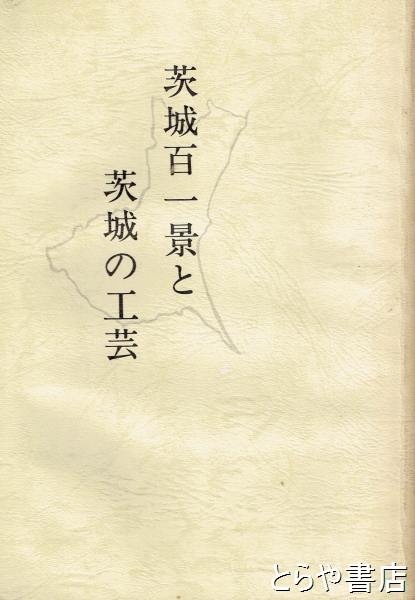 茨城百一景と
茨城の工芸
とらや書店